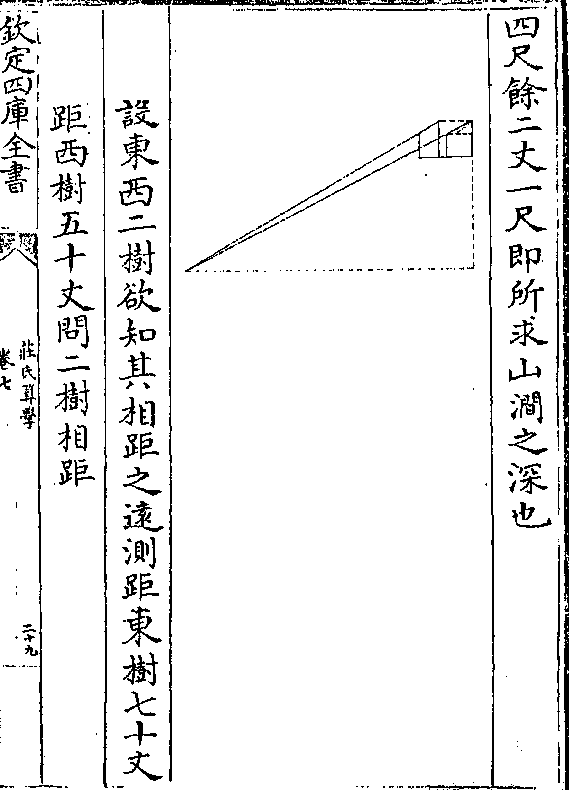 四尺餘二丈一尺即所求山澗之深也
設東西二樹欲知其相距之逺測距東樹七十丈
距西樹五十丈問二樹相距
欽定四庫全書
莊氏算學
卷七
二十九